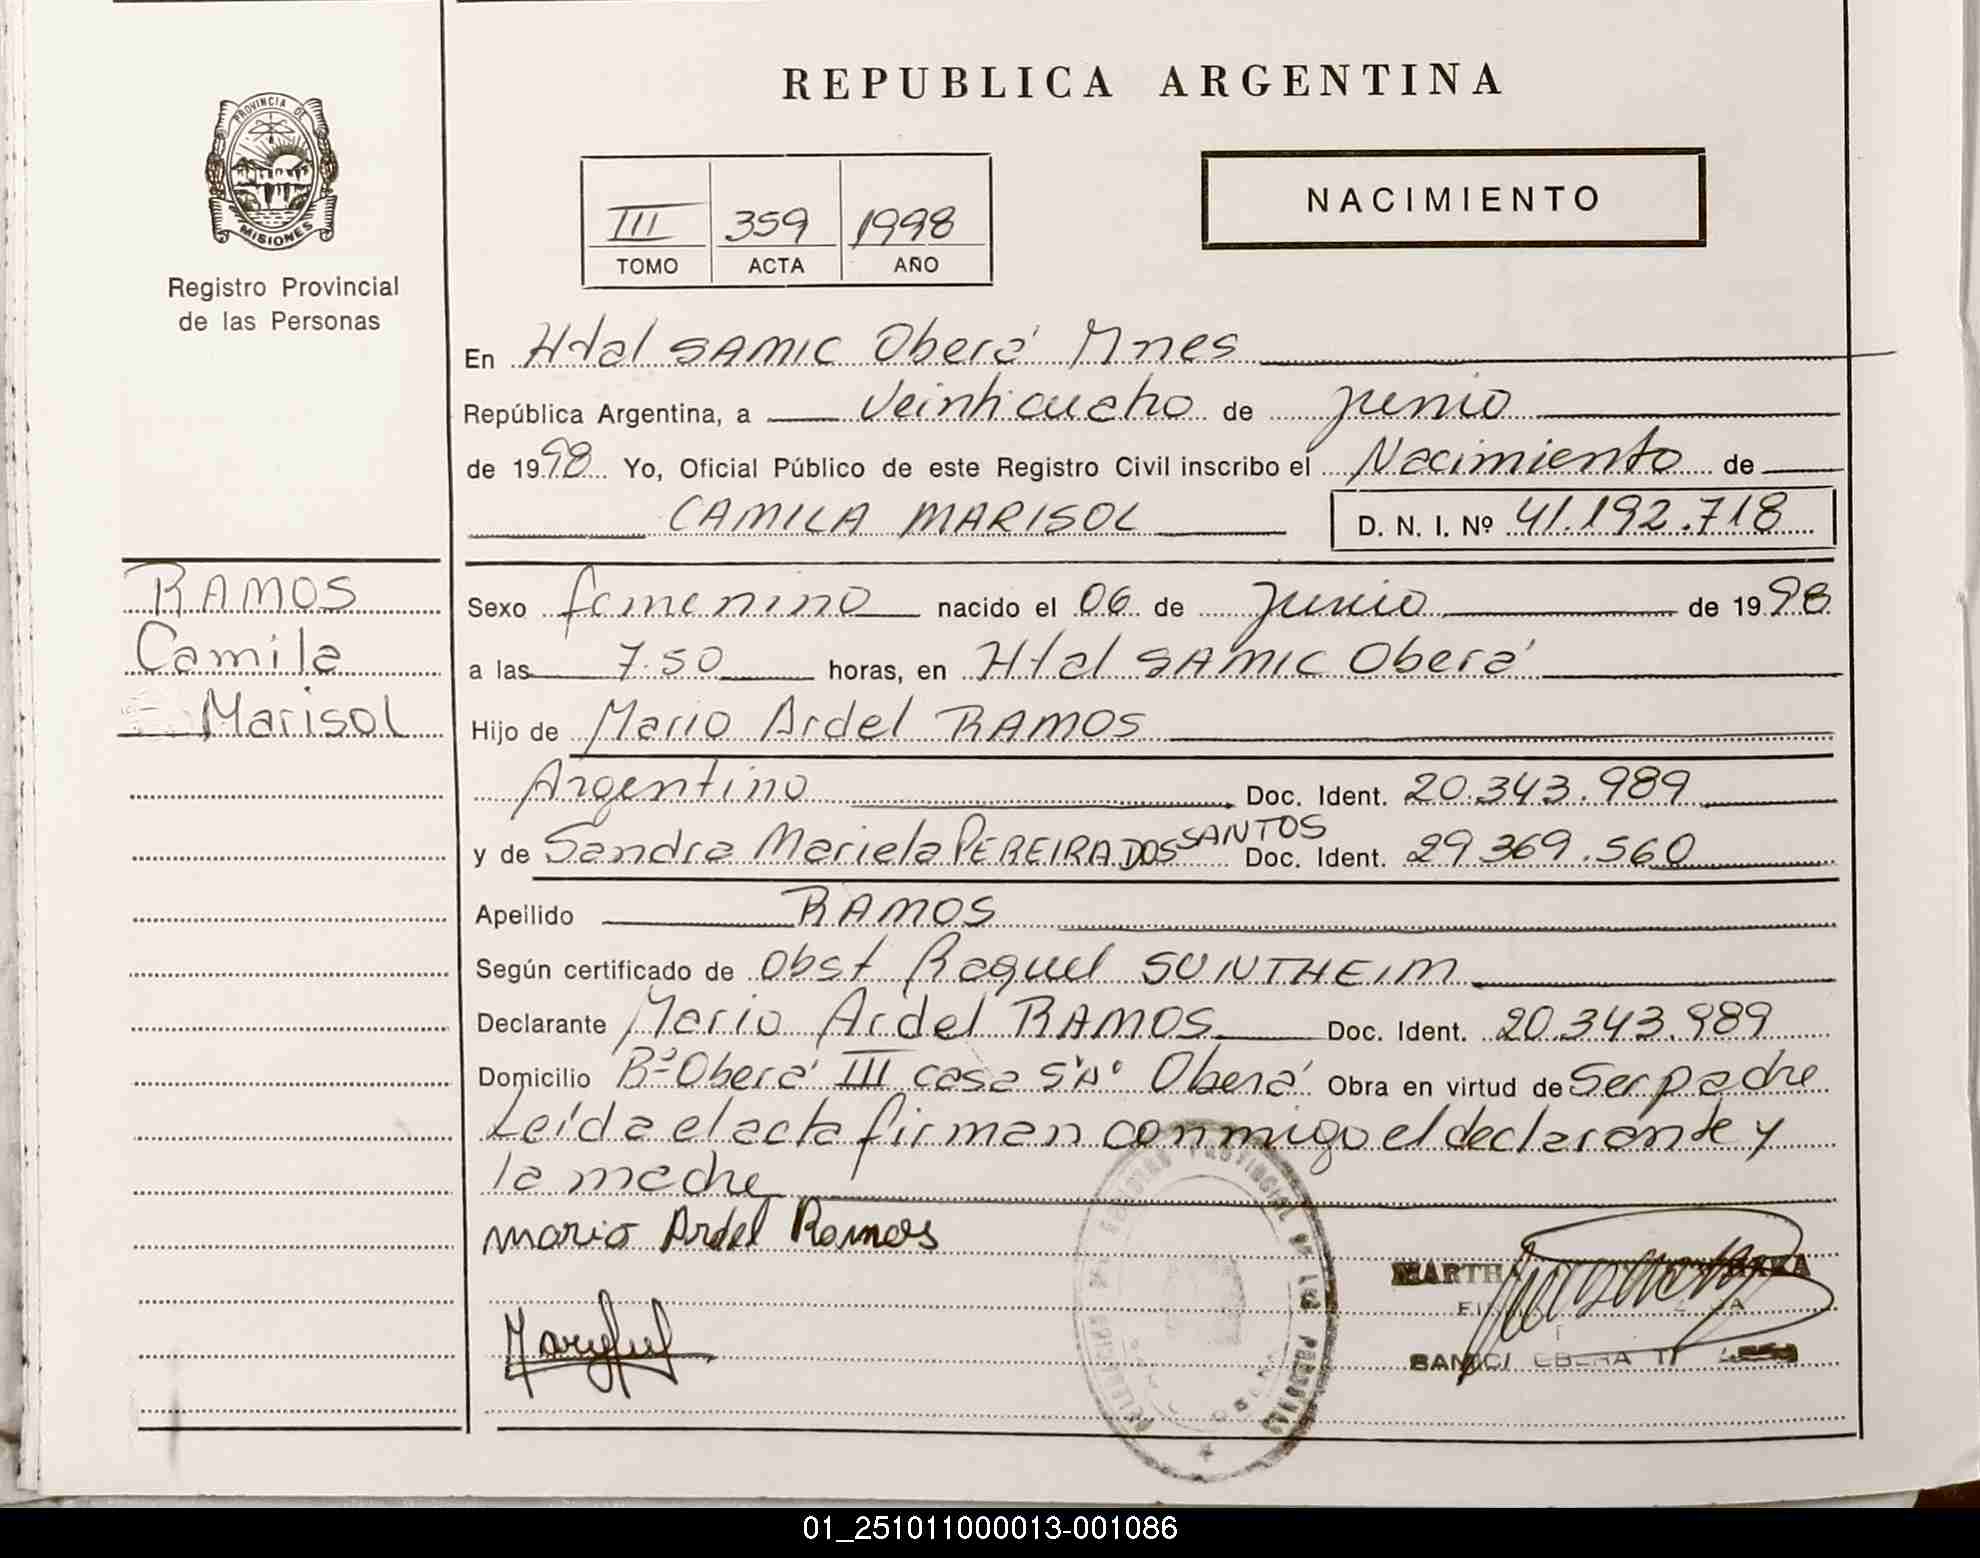 PROVINCIA DE
MISIONES
Registro Provincial
de las Personas
RAMOS
Camila
Marisol
REPUBLICA ARGENTINA
III 359 1998
TOMO ACTA AÑO
NACIMIENTO
En Htal SAMIC Oberá Mnes
República Argentina, a veinticuatro de junio
de 1998 Yo, Oficial Público de este Registro Civil inscribo el Nacimiento de
CAMILA MARISOL D. N. I. Nº 41.192.718
Sexo femenino nacido el 06 de junio de 1998
a las 7.50 horas, en Htal SAMIC Oberá
Hijo de Mario Ardel RAMOS
Argentino Doc. Ident. 20.343.989
y de Sandra Mariela PEREIRA DOS SANTOS Doc. Ident. 29.369.560
Apellido RAMOS
Según certificado de Obst Raquel SUNTHEIM
Declarante Mario Ardel RAMOS Doc. Ident. 20.343.989
Domicilio Bº Oberá III casa S'Nº Oberá Obra en virtud de Ser padre
Leída el acta firman conmigo el declarante y
la madre
Mario Ardel Ramos
MARTHA
01_251011000013-001086